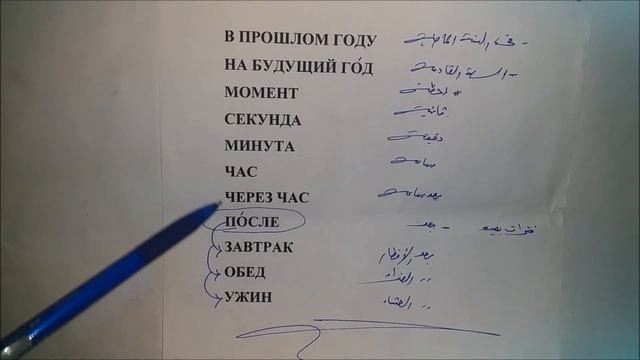 В ПРОШЛОМ ГОДУ - في السنة الماضية
НА БУДУЩИЙ ГО́Д - السنة القادمة
МОМЕНТ * لحظة
СЕКУНДА ثانية
МИНУТА دقيقة
ЧАС ساعة
ЧЕРЕЗ ЧАС بعد ساعة
ПО́СЛЕ بعد -
ЗАВТРАК بعد الإفطار
ОБЕД ,, الغداء
УЖИН ,, العشاء